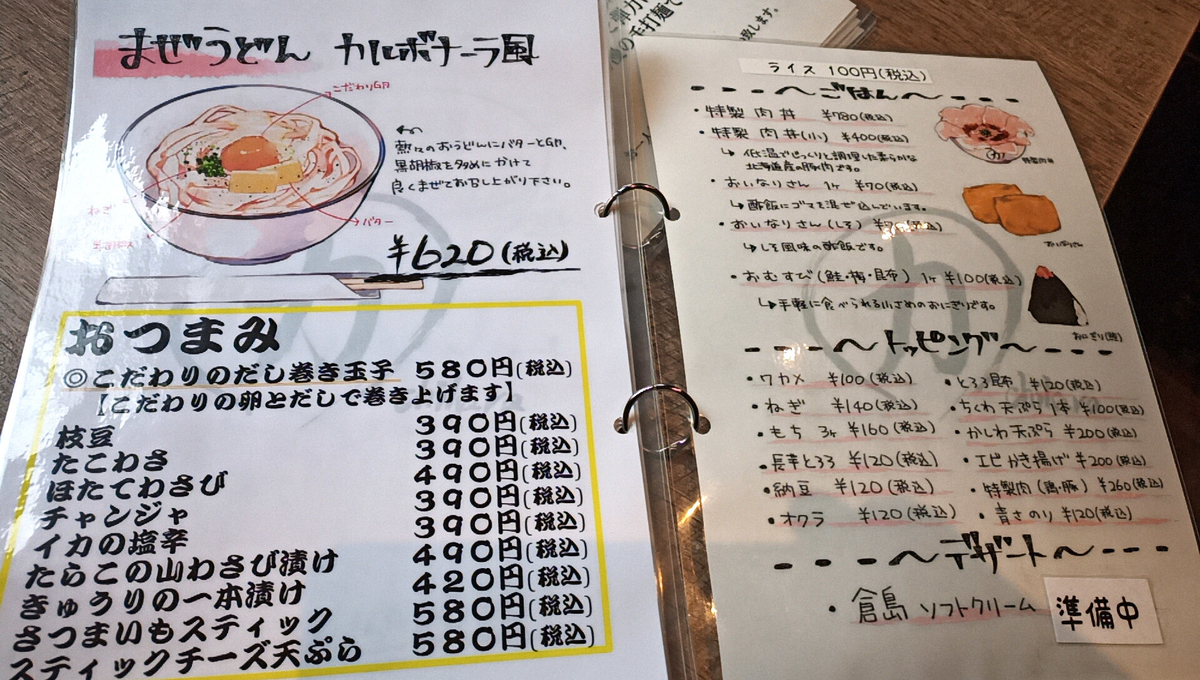 まぜうどん カルボナーラ風
こだわり卵
熱々のおうどんにバターと卵、
黒胡椒を多めにかけて
良くまぜてお召し上がり下さい。
ねぎ
黒胡椒
バター
¥620(税込)
おつまみ
◎こだわりのだし巻き玉子 580円(税込)
【こだわりの卵とだしで巻き上げます】
枝豆 390円(税込)
たこわさ 390円(税込)
ほたてわさび 490円(税込)
チャンジャ 390円(税込)
イカの塩辛 390円(税込)
たらこの山わさび漬け 490円(税込)
きゅうりの一本漬け 420円(税込)
さつまいもスティック 580円(税込)
スティックチーズ天ぷら 580円(税込)
の手打麺で
致します。
ライス 100円(税込)
〜ごはん〜
・特製 肉丼 ¥780(税込)
・特製 肉丼(小) ¥400(税込)
↳ 低温でじっくりと調理した柔らかな
北海道産の豚肉です。
特製肉丼
・おいなりさん 1ヶ ¥70(税込)
↳酢飯にゴマを混ぜ込んでいます。
・おいなりさん(しそ) (税込)
↳しそ風味の酢飯です。
おいなりさん
・おむすび(鮭・梅・昆布) 1ヶ ¥100(税込)
↳手軽に食べられる小さめのおにぎりです。
おにぎり(鮭)
〜トッピング〜
・ワカメ ¥100(税込) ・とろろ昆布 ¥120(税込)
・ねぎ ¥140(税込) ・ちくわ天ぷら 1本 ¥100(税込)
・もち 3ヶ ¥160(税込) ・かしわ天ぷら ¥200(税込)
・長芋とろろ ¥120(税込) ・エビかき揚げ ¥200(税込)
・納豆 ¥120(税込) ・特製肉(鶏・豚) ¥260(税込)
・オクラ ¥120(税込) ・青さのり ¥120(税込)
〜デザート〜
・倉島 ソフトクリーム 準備中